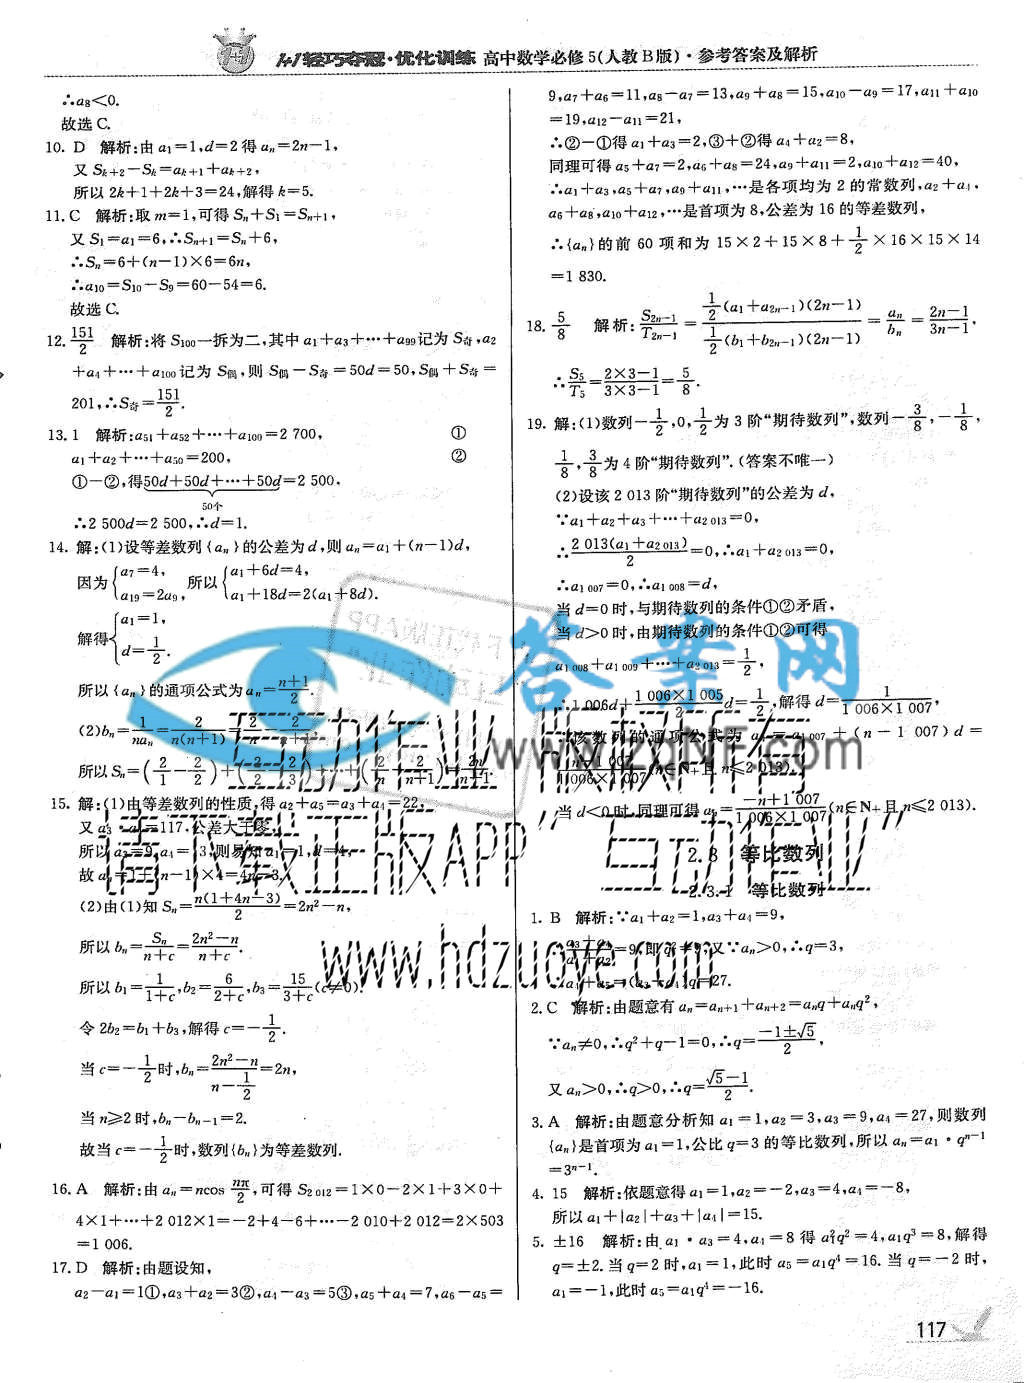 1+1轻巧夺冠·优化训练 高中数学必修5(人教B版)·参考答案及解析
∴a₈<0.
故选C.
10. D 解析:由a₁=1,d=2得aₙ=2n-1,
又Sₖ₊₂-Sₖ=aₖ₊₁+aₖ₊₂,
所以2k+1+2k+3=24,解得k=5.
11. C 解析:取m=1,可得Sₙ+S₁=Sₙ₊₁,
又S₁=a₁=6,∴Sₙ₊₁=Sₙ+6,
∴Sₙ=6+(n-1)×6=6n,
∴a₁₀=S₁₀-S₉=60-54=6.
故选C.
12. 151/2 解析:将S₁₀₀一拆为二,其中a₁+a₃+…+a₉₉记为S奇,a₂
+a₄+…+a₁₀₀记为S偶,则S偶-S奇=50d=50,S偶+S奇=
201,∴S奇=151/2.
13. 1 解析:a₅₁+a₅₂+…+a₁₀₀=2 700, ①
a₁+a₂+…+a₅₀=200, ②
①-②,得50d+50d+…+50d=2 500,
50个
∴2 500d=2 500,∴d=1.
14. 解:(1)设等差数列{aₙ}的公差为d,则aₙ=a₁+(n-1)d,
因为{a₇=4, a₁₉=2a₉, 所以{a₁+6d=4, a₁+18d=2(a₁+8d).
解得{a₁=1, d=1/2.
所以{aₙ}的通项公式为aₙ=(n+1)/2.
(2)bₙ=1/(naₙ)=2/(n(n+1))=2/n-2/(n+1),
所以Sₙ=(2/1-2/2)+(2/2-2/3)+…+(2/n-2/(n+1))=2n/(n+1).
15. 解:(1)由等差数列的性质,得a₂+a₅=a₃+a₄=22,
又a₃·a₄=117,公差大于零,
所以a₃=9,a₄=13,则易知a₁=1,d=4,
故aₙ=1+(n-1)×4=4n-3.
(2)由(1)知Sₙ=n(1+4n-3)/2=2n²-n,
所以bₙ=Sₙ/(n+c)=(2n²-n)/(n+c).
所以b₁=1/(1+c),b₂=6/(2+c),b₃=15/(3+c)(c≠0).
令2b₂=b₁+b₃,解得c=-1/2.
当c=-1/2时,bₙ=(2n²-n)/(n-1/2)=2n,
当n≥2时,bₙ-bₙ₋₁=2.
故当c=-1/2时,数列{bₙ}为等差数列.
16. A 解析:由aₙ=ncos nπ/2,可得S₂ ₀₁₂=1×0-2×1+3×0+
4×1+…+2 012×1=-2+4-6+…-2 010+2 012=2×503
=1 006.
17. D 解析:由题设知,
a₂-a₁=1①,a₃+a₂=3②,a₄-a₃=5③,a₅+a₄=7,a₆-a₅=
9,a₇+a₆=11,a₈-a₇=13,a₉+a₈=15,a₁₀-a₉=17,a₁₁+a₁₀
=19,a₁₂-a₁₁=21,
∴②-①得a₁+a₃=2,③+②得a₄+a₂=8,
同理可得a₅+a₇=2,a₆+a₈=24,a₉+a₁₁=2,a₁₀+a₁₂=40,
∴a₁+a₃,a₅+a₇,a₉+a₁₁,…是各项均为2的常数列,a₂+a₄,
a₆+a₈,a₁₀+a₁₂,…是首项为8,公差为16的等差数列,
∴{aₙ}的前60项和为15×2+15×8+1/2×16×15×14
=1 830.
18. 5/8 解析:S₂ₙ₋₁/T₂ₙ₋₁=[1/2(a₁+a₂ₙ₋₁)(2n-1)]/[1/2(b₁+b₂ₙ₋₁)(2n-1)]=aₙ/bₙ=(2n-1)/(3n-1),
∴S₅/T₅=(2×3-1)/(3×3-1)=5/8.
19. 解:(1)数列-1/2,0,1/2为3阶“期待数列”,数列-3/8,-1/8,
1/8,3/8为4阶“期待数列”.(答案不唯一)
(2)设该2 013阶“期待数列”的公差为d,
∵a₁+a₂+a₃+…+a₂ ₀₁₃=0,
∴2 013(a₁+a₂ ₀₁₃)/2=0,∴a₁+a₂ ₀₁₃=0,
∴a₁ ₀₀₇=0,∴a₁ ₀₀₈=d,
当d=0时,与期待数列的条件①②矛盾,
当d>0时,由期待数列的条件①②可得
a₁ ₀₀₈+a₁ ₀₀₉+…+a₂ ₀₁₃=1/2,
∴1 006d+(1 006×1 005/2)d=1/2,解得d=1/(1 006×1 007),
该数列的通项公式为aₙ=a₁ ₀₀₇+(n-1 007)d=
(n-1 007)/(1 006×1 007)(n∈N₊且n≤2 013).
当d<0时,同理可得aₙ=(-n+1 007)/(1 006×1 007)(n∈N₊且n≤2 013).
2.3 等比数列
2.3.1 等比数列
1. B 解析:∵a₁+a₂=1,a₃+a₄=9,
∴(a₃+a₄)/(a₁+a₂)=9,即q²=9,又∵aₙ>0,∴q=3,
∴a₄+a₅=(a₃+a₄)q=27.
2. C 解析:由题意有aₙ=aₙ₊₁+aₙ₊₂=aₙq+aₙq²,
∵aₙ≠0,∴q²+q-1=0,∴q=(-1±√5)/2,
又aₙ>0,∴q>0,∴q=(√5-1)/2.
3. A 解析:由题意分析知a₁=1,a₂=3,a₃=9,a₄=27,则数列
{aₙ}是首项为a₁=1,公比q=3的等比数列,所以aₙ=a₁·qⁿ⁻¹
=3ⁿ⁻¹.
4. 15 解析:依题意得a₁=1,a₂=-2,a₃=4,a₄=-8,
所以a₁+|a₂|+a₃+|a₄|=15.
5. ±16 解析:由a₁·a₃=4,a₄=8得a₁²q²=4,a₁q³=8,解得
q=±2.当q=2时,a₁=1,此时a₅=a₁q⁴=16.当q=-2时,
a₁=-1,此时a₅=a₁q⁴=-16.
117
答案网
www.1zqnf.com
互动作业
请下载正版APP“互动作业”
www.hdzuoye.com